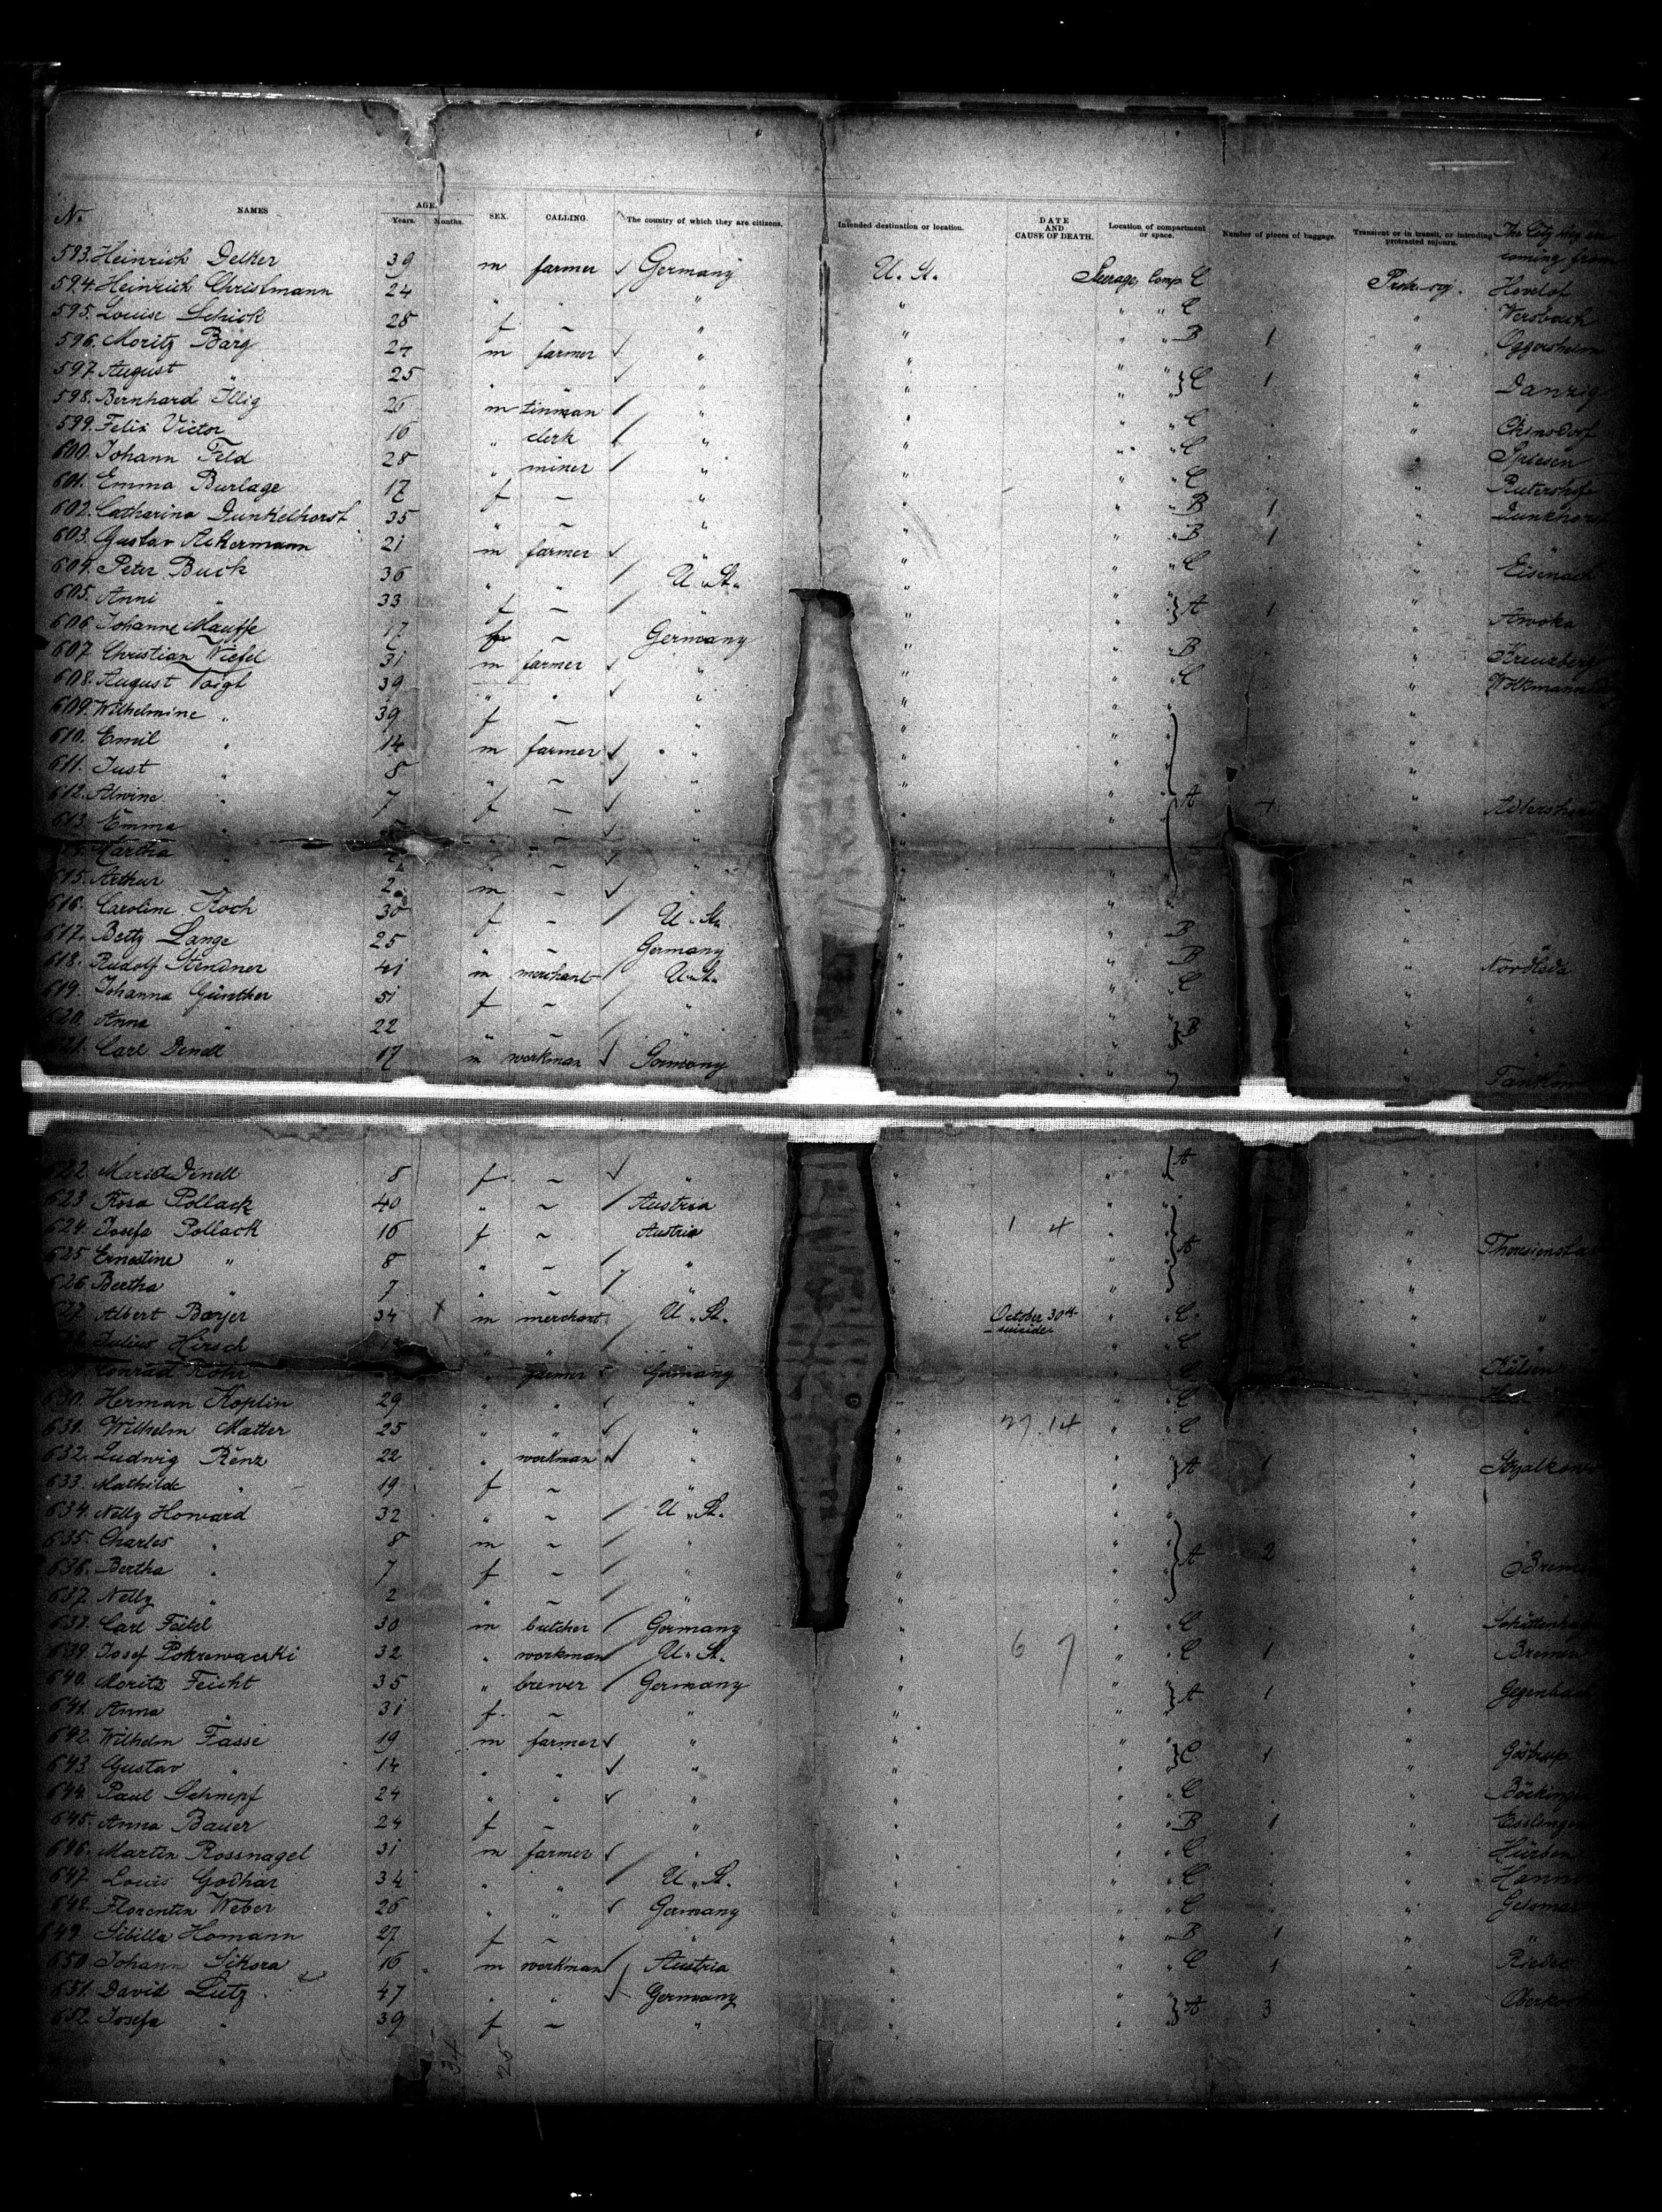 No. NAMES AGE. Years. Months. SEX. CALLING. The country of which they are citizens. Intended destination or location. DATE AND CAUSE OF DEATH. Location of compartment or space. Number of pieces of baggage. Transient or in transit, or intending protracted sojourn. The City they are coming from
593. Heinrich Delker 39 m farmer ✓ Germany U. St. Steerage Comp C
594. Heinrich Christmann 24 " " ✓ " " " " C Prot. soj. Hovelof
595. Louise Schick 28 f ~ " " " B 1 " Wersbach
596. Moritz Barg 27 m farmer ✓ " " " Oggersheim
597. August " 25 " " ✓ " " " } C 1 " Danzig
598. Bernhard Illig 26 m tinman / " " " C "
599. Felix Victor 16 " clerk / " " " C "
600. Johann Feld 28 " miner / " " " C " Spiesen
601. Emma Burlage 17 f ~ " " " B 1 "
602. Catharina Dunkelhorst 35 " ~ " " " B 1 "
603. Gustav Ackermann 21 m farmer ✓ " " " C " Eisenach
604. Peter Buck 36 " " / U. St. "
605. Anni " 33 f ~ / " " } A 1 "
606. Johanne Mauffe 17 f ~ Germany " " B " Kreuzberg
607. Christian Wiefel 31 m farmer ✓ " " " C "
608. August Voigt 39 " " " "
609. Wilhelmine " 39 f ~ " "
610. Emil " 14 m farmer ✓ " "
611. Just " 8 " ~ ✓ " "
612. Alwine " 7 f ~ ✓ " " A "
613. Emma " ~ ✓ " "
Martha " ~ ✓ " "
615. Arthur 2 m ~ ✓ " "
616. Caroline Koch 30 f ~ / U. St. " B "
617. Betty Lange 25 " ~ Germany " B "
618. Rudolf Stendner 41 m merchant / U. St. " C "
619. Johanna Günther 51 f ~ / " "
620. Anna " 22 " ~ / " " } B "
621. Carl Denell 17 m workman ✓ Germany "
622. Maria Denell 8 f ~ ✓ " " A "
623. Rosa Pollack 40 " ~ / Austria "
624. Josefa Pollack 16 f ~ Austria 1 4 "
625. Ernestine " 8 " ~ / " " A "
626. Bertha " 7 " ~ / " "
627. Albert Bayer 34 X m merchant U. St. October 30th C "
suicide
Julius Hirsch " " " C "
Conrad Rohr " farmer Germany " C "
630. Herman Koplin 29 " " ✓ " " C "
631. Wilhelm Matter 25 " " ✓ " " 27.14 C "
632. Ludwig Renz 22 " workman ✓ " " } A 1 "
633. Mathilde " 19 f ~ " "
634. Nelly Howard 32 " ~ / U. St. "
635. Charles " 8 m ~ / " "
636. Bertha " 7 f ~ / " " } A 2 "
637. Nelly " 2 " ~ / " "
638. Carl Feitel 30 m butcher / Germany " C "
639. Josef Pokrowacski 32 " workman / U. St. " 6 7 C 1 " Bremen
640. Moritz Feicht 35 " brewer / Germany " } A 1 "
641. Anna " 31 f ~ " "
642. Wilhelm Fasse 19 m farmer ✓ " " } C 1 "
643. Gustav " 14 " " ✓ " "
644. Paul Schnepf 24 " " ✓ " " C "
645. Anna Bauer 24 f ~ " " B 1 "
646. Martin Rossnagel 31 m farmer ✓ " " C " Hürben
647. Louis Godhar 34 " " / U. St. " C "
648. Florentin Weber 26 " " ✓ Germany " C "
649. Sibilla Homann 27 f ~ " " B 1 "
650. Johann Sikora 16 m workman / Austria " C 1 "
651. David Lutz 47 " " ✓ Germany " } A 3 "
652. Josefa " 39 f ~ " "
34 25